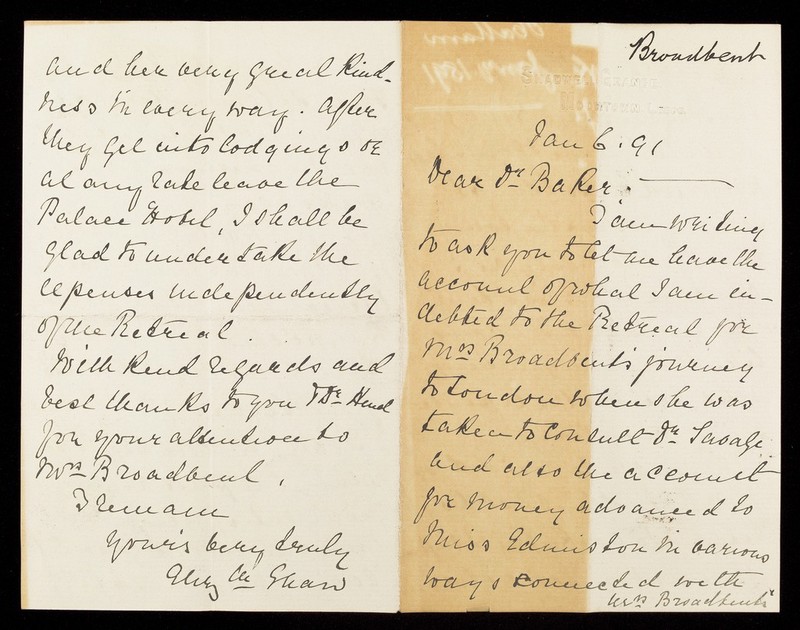 Broadbent
Jan 6. 91
Dear Dr Baker.
I am writing
to ask you to let me have the
account of what I am in-
debted to the Retreat for
Mrs Broadbent's journey
to London when she was
taken to consult Dr Savage
and also the account
for money advanced to
Miss Edmiston in various
ways connected with
Mrs Broadbent's
and her very great kind-
ness in every way. After
they get into lodgings or
at any rate leave the
Palace Hotel, I shall be
glad to undertake the
expenses independently
of the Retreat.
With kind regards and
best thanks to you & Dr
for your attention to
Mrs Broadbent,
I remain
Yours very truly
Shaw